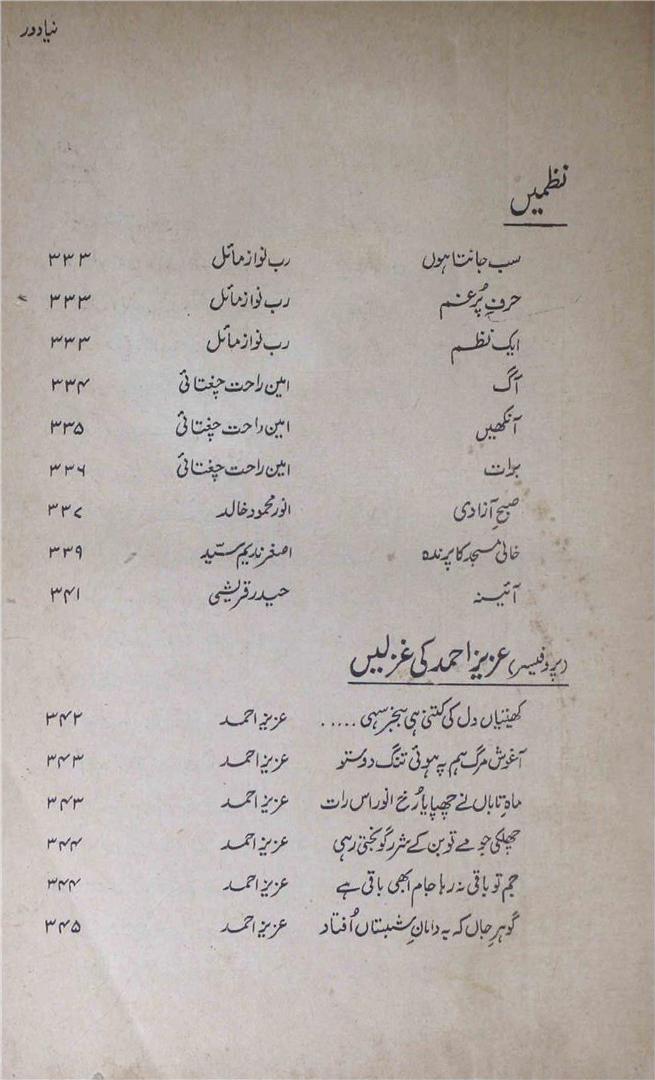 نیادور
نظمیں
سب جانتا ہوں رب نواز مائل ۳۳۳
حرفِ پُر غم رب نواز مائل ۳۳۳
ایک نظم رب نواز مائل ۳۳۳
آگ امین راحت چغتائی ۳۳۴
آنکھیں امین راحت چغتائی ۳۳۵
برات امین راحت چغتائی ۳۳۶
صبحِ آزادی انور محمود خالد ۳۳۷
خالی مسجد کا پرندہ اصغر ندیم سیّد ۳۳۹
آئینہ حیدر قریشی ۳۴۱
(پروفیسر) عزیز احمد کی غزلیں
کھیتیاں دل کی کتنی ہی بنجر سہی ..... عزیز احمد ۳۴۲
آغوش مرگ ہم پہ ہوئی تنگ دوستو عزیز احمد ۳۴۳
ماہِ تاباں نے چھپایا رُخ انور اس رات عزیز احمد ۳۴۳
چھلکی جو مے تو بن کے شرر گونجتی رہی عزیز احمد ۳۴۴
جم تو باقی نہ رہا جام ابھی باقی ہے عزیز احمد ۳۴۴
گوہرِ جاں کہ بہ دامانِ شبستاں اُفتاد عزیز احمد ۳۴۵